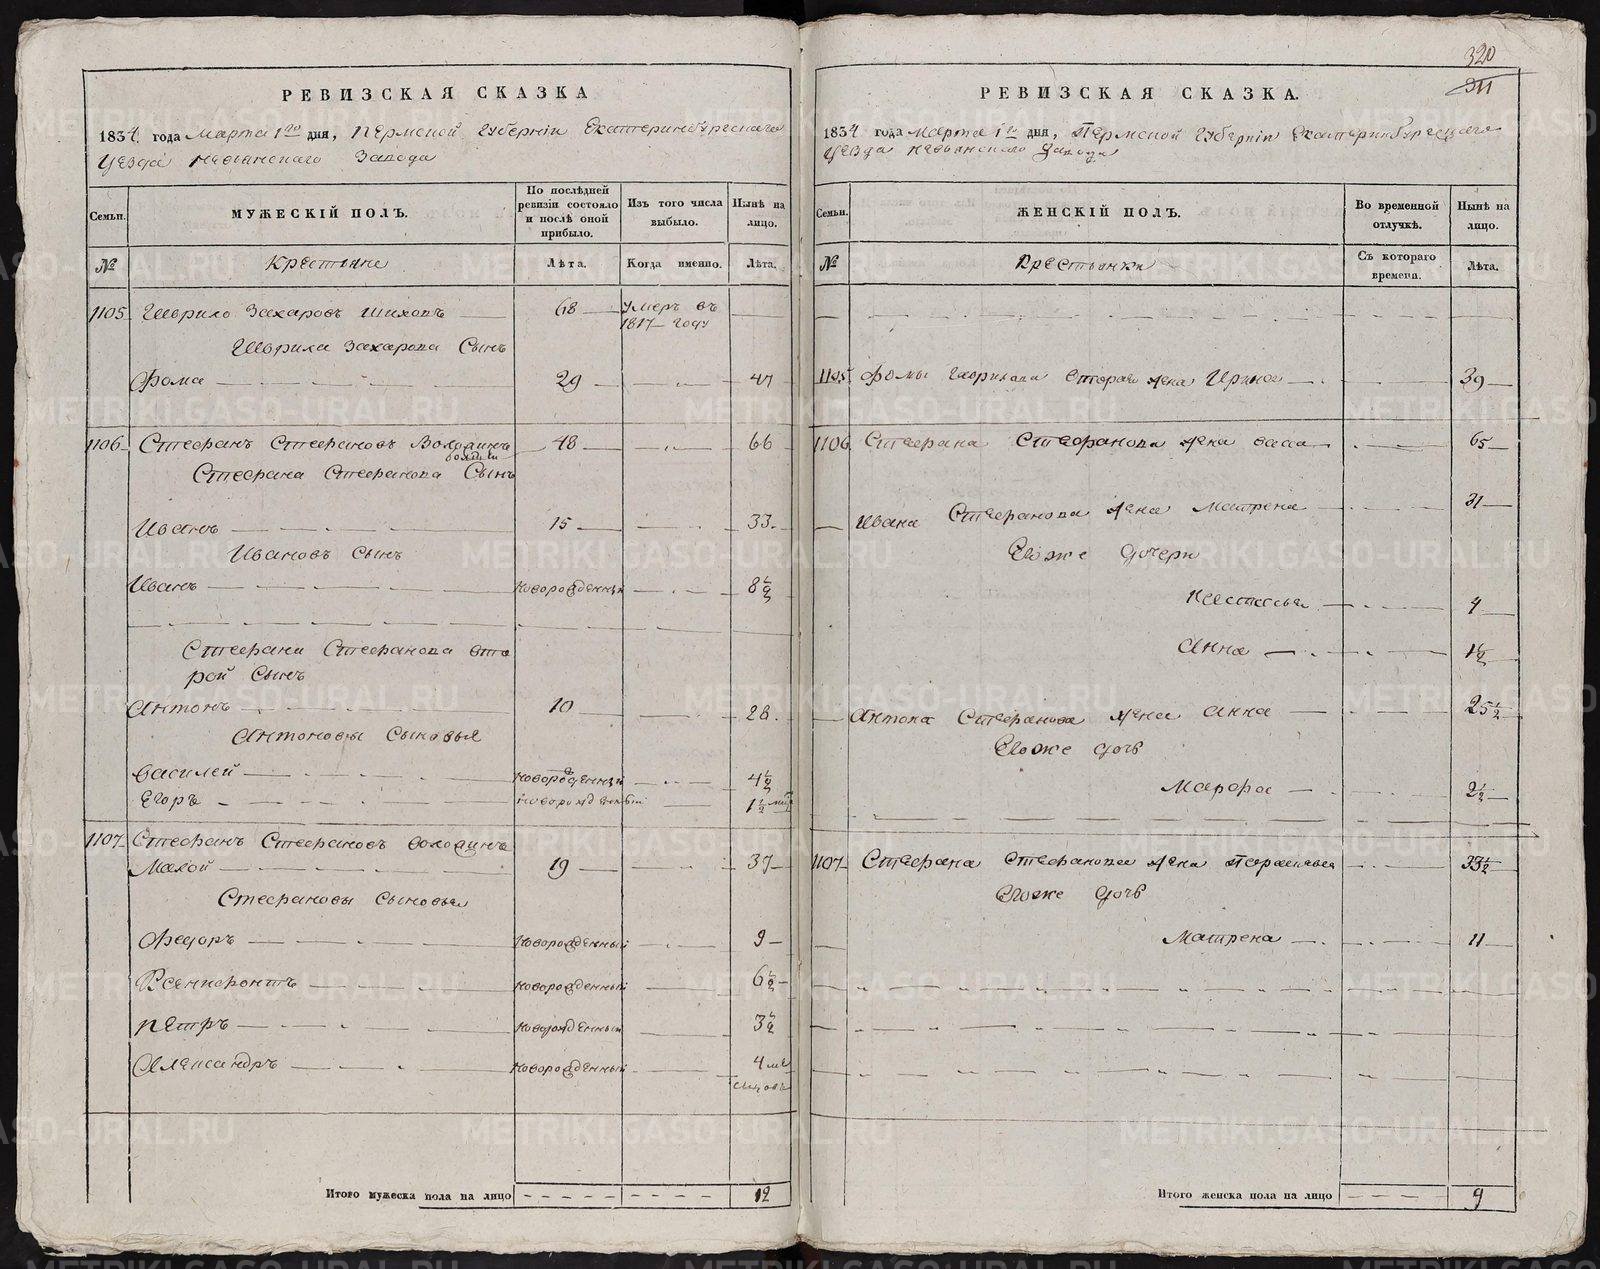 РЕВИЗСКАЯ СКАЗКА
1834 года Марта 1го дня, Пермской Губернiи Екатеринбургскаго
Уезда Невьянскаго Завода
Семьи.
МУЖЕСКIЙ ПОЛЪ.
По послѣдней ревизiи состояло и послѣ оной прибыло.
Изъ того числа выбыло.
Нынѣ на лицо.
№
Крестьяне
Лѣта.
Когда именно.
Лѣта.
1105 Гаврило Захаровъ 68 Умеръ въ 1817 году
Гаврила Захарова Сынъ
Фома 29 47
1106 Стефанъ Стефановъ Володинъ большой 48 66
Стефана Стефанова Сынъ
Иванъ 15 33
Ивановъ Сынъ
Иванъ новорожденный 8 1/2
Стефана Стефанова вто
рой Сынъ
Антонъ 10 28
Антоновы Сыновья
Василей новорожденный 4 1/2
Егоръ новорожденный 1 1/2
1107 Стефанъ Стефановъ Володинъ
Малой 19 37
Стефановы Сыновья
Федоръ новорожденный 9
Ксенифонтъ новорожденный 6 1/2
Петръ новорожденный 3 1/2
Александръ новорожденный 4 месяцовъ
Итого мужеска пола на лицо 12
320
311
РЕВИЗСКАЯ СКАЗКА.
1834 года Марта 1го дня, Пермской Губернiи Екатеринбургскаго
Уезда Невьянскаго Завода
Семьи.
ЖЕНСКIЙ ПОЛЪ.
Во временной отлучкѣ.
Нынѣ на лицо.
№
Крестьянки
Съ котораго времени.
Лѣта.
1105 Фомы Гаврилова вторая жена Ирина 39
1106 Стефана Стефанова жена 65
Ивана Стефанова жена Матрена 31
Евоже дочери
Настасья 4
Анна 1 1/2
Антона Стефанова жена Анна 25 1/2
Евоже дочь
Марфа 2 1/2
1107 Стефана Стефанова жена Парасковья 33 1/2
Евоже дочь
Матрена 11
Итого женска пола на лицо 9
METRIKI.GASO-URAL.RU